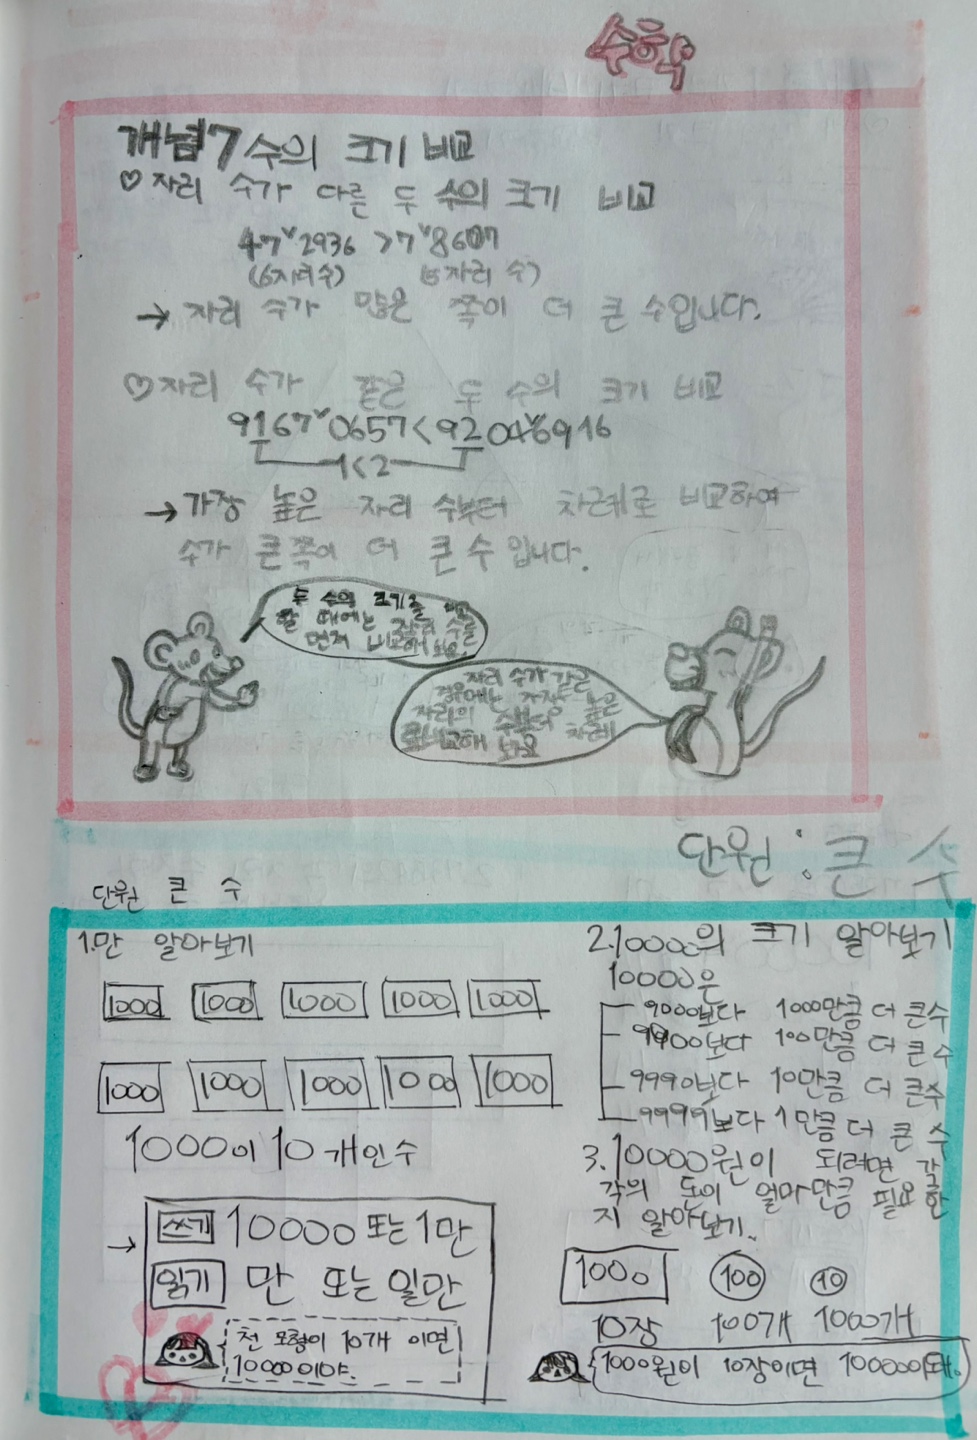 수학
개념7 수의 크기 비교
♡자리 수가 다른 두 수의 크기 비교
47ˇ2936 >7ˇ8607
(6자리수) (5자리 수)
→ 자리 수가 많은 쪽이 더 큰 수입니다.
♡자리 수가 같은 두 수의 크기 비교
9167ˇ0657<9204ˇ6916
1<2
→가장 높은 자리 수부터 차례로 비교하여
수가 큰쪽이 더 큰 수 입니다.
두 수의 크기를 비교
할 때에는 자리 수를
먼저 비교해 보요.
자리 수가 같은
경우에는 가장 높은
자리의 수부터 차례
로비교해 보요
단원 : 큰 수
단원 큰 수
1.만 알아보기
1000 1000 1000 1000 1000
1000 1000 1000 1000 1000
1000이 10개인수
→ 쓰기 10000 또는 1만
읽기 만 또는 일만
천 모형이 10개 이면
10000이야.
2.10000의 크기 알아보기
10000은
9000보다 1000만큼 더 큰수
9900보다 100만큼 더 큰 수
9990보다 10만큼 더 큰수
9999보다 1만큼 더 큰 수
3.10000원이 되려면 각
각의 돈이 얼마만큼 필요한
지 알아보기.
1000 100 10
10장 100개 1000개
1000원이 10장이면 10000이돼.